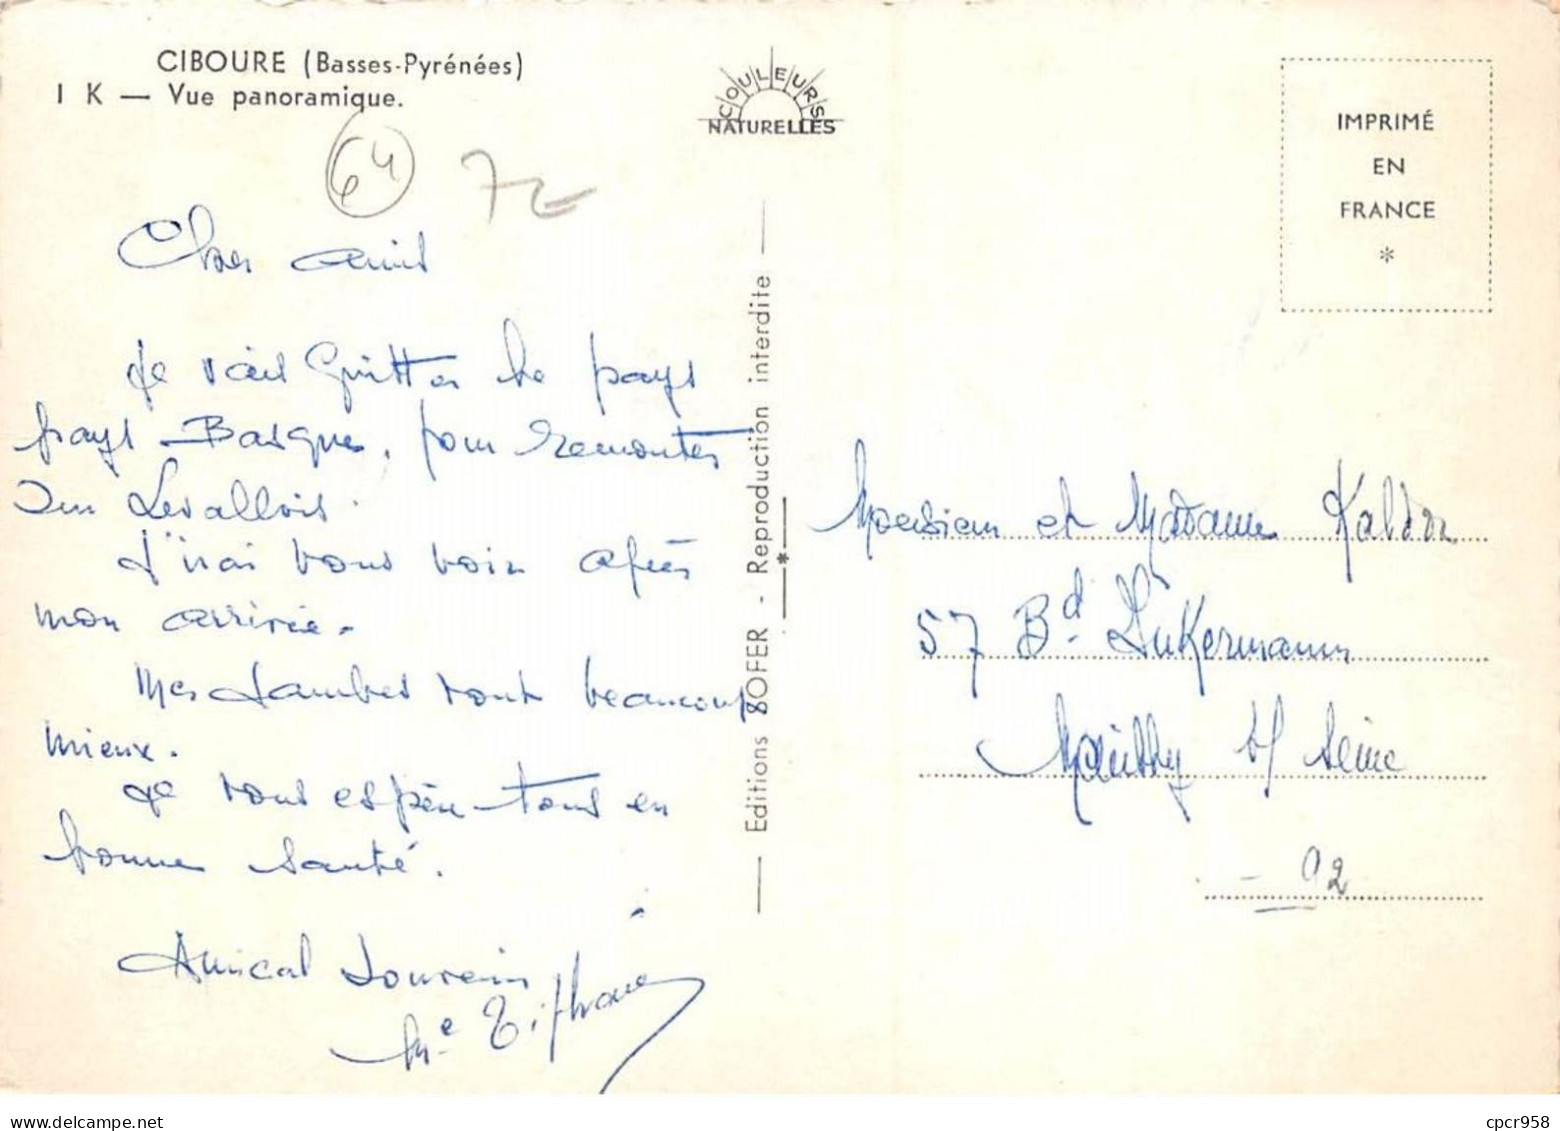 CIBOURE (Basses-Pyrénées)
I K — Vue panoramique.
COULEURS
NATURELLES
IMPRIMÉ
EN
FRANCE
*
64
72
Chers amis
Je vais quitter le pays
pays Basque, pour remonter
sur Levallois.
J'irai vous voir après
mon arrivée.
Mes jambes vont beaucoup
mieux.
Je vous espère tous en
bonne santé.
Amical Souvenir
Me
Editions SOFER - Reproduction interdite
Monsieur et Madame Kaldor
57 Bd. Inkermann
Neuilly s/ Seine
- 92
www.delcampe.net
cpcr958